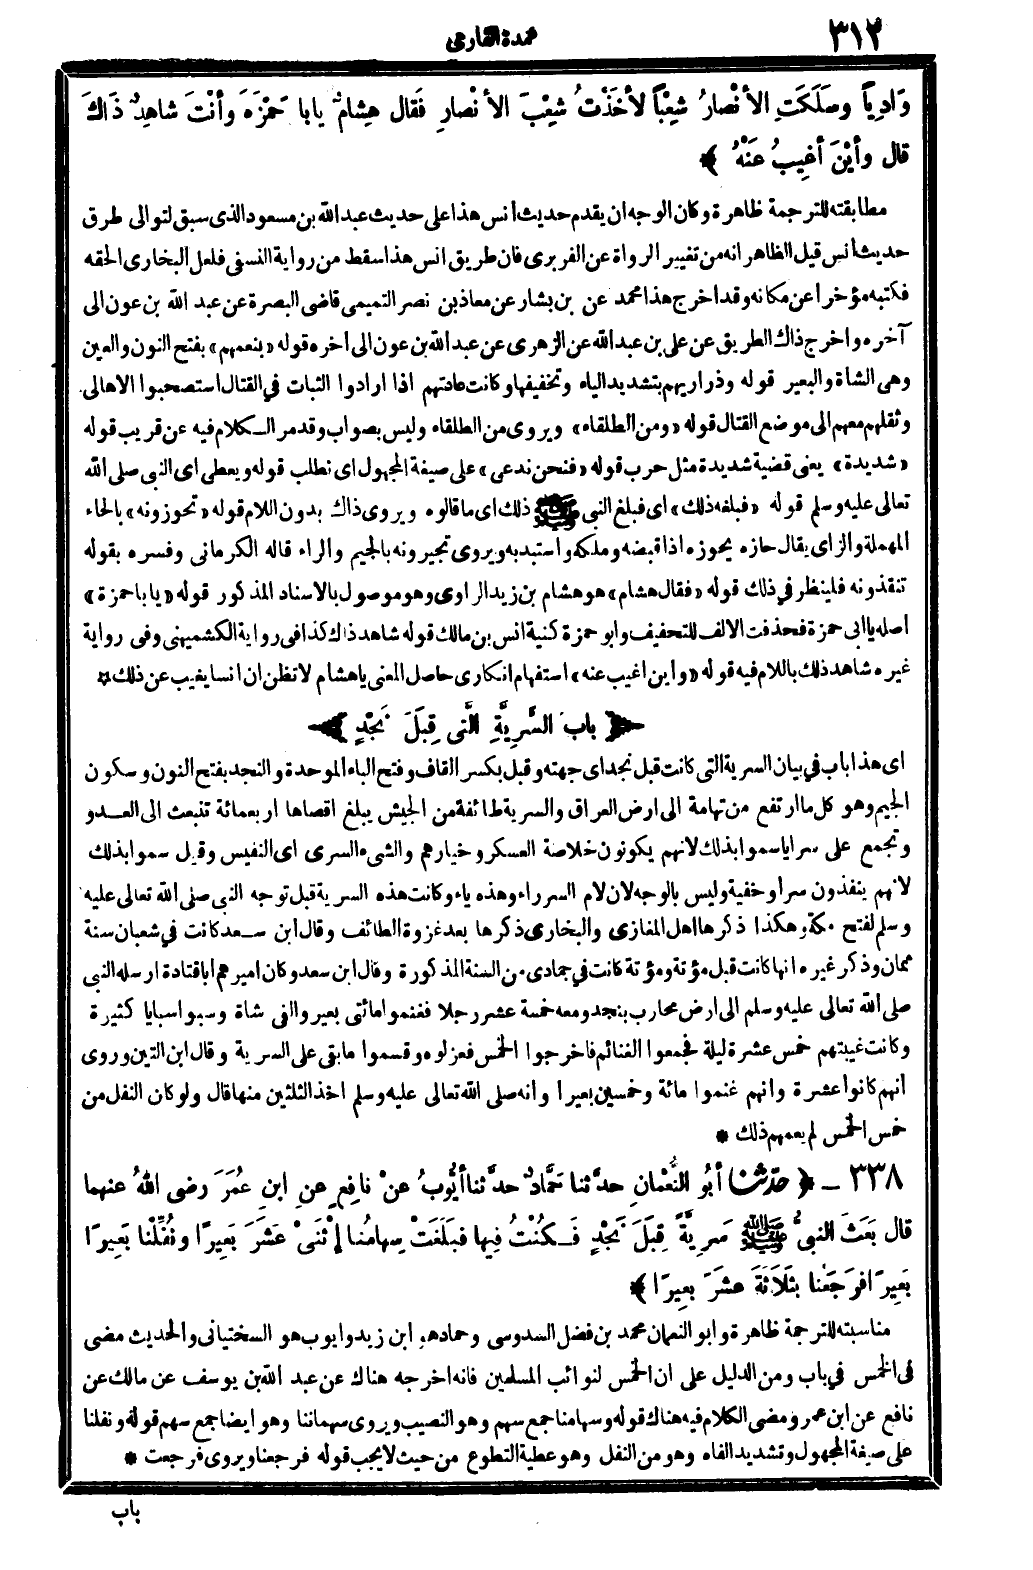 ٣١٢
عمدة القارى
وَادِياً وسَلَكَتِ الأنْصارُ شِعْباً لأخَذْتُ شِعْبَ الأنْصارِ فَقال هِشامٌ يابا حَمْزَةَ وأنْتَ شاهِدٌ ذَاكَ
قال وأيْنَ أغِيبُ عَنْهُ ﴾
مطابقته للترجمة ظاهرة وكان الوجه ان يقدم حديث انس هذا على حديث عبد الله بن مسعود الذى سبق لتوالى طرق
حديث أنس قيل الظاهر انه من تغيير الرواة عن الفربرى فان طريق انس هذا سقط من رواية النسفى فلعل البخارى الحقه
فكتبه مؤخرا عن مكانه وقد اخرج هذا محمد عن بن بشار عن معاذ بن نصر التميمى قاضى البصرة عن عبد الله بن عون الى
آخره واخرج ذاك الطريق عن على بن عبد الله عن الزهرى عن عبد الله بن عون الى اخره قوله «بنعمهم» بفتح النون والعين
وهى الشاة والبعير قوله وذراريهم بتشديد الياء وتخفيفها وكانت عادتهم اذا ارادوا الثبات في القتال استصحبوا الاهالى
ونقلهم معهم الى موضع القتال قوله «ومن الطلقاء» ويروى من الطلقاء وليس بصواب وقد مر الكلام فيه عن قريب قوله
«شديدة» يعنى قضية شديدة مثل حرب قوله «فنحن ندعى» على صيغة المجهول اى نطلب قوله ويعطى اى النبى صلى الله
تعالى عليه وسلم قوله «فبلغه ذلك» اى فبلغ النبى ﷺ ذلك اى ما قالوه ويروى ذاك بدون اللام قوله «تحوزونه» بالحاء
المهملة والزاى يقال حازه يحوزه اذا قبضه وملكه واستبد به ويروى تجيرونه بالجيم والراء قاله الكرمانى وفسره بقوله
تنقذونه فلينظر في ذلك قوله «فقال هشام» هو هشام بن زيد الراوى وهو موصول بالاسناد المذكور قوله «يابا حمزة»
اصله يا ابى حمزة فحذفت الالف للتحفيف وابو حمزة كنية انس بن مالك قوله شاهد ذاك كذا فى رواية الكشميهنى وفى رواية
غيره شاهد ذلك باللام فيه قوله «واين اغيب عنه» استفهام انكارى حاصل المعنى ياهشام لا تظن ان انسا يغيب عن ذلك ☆
﴿ بابُ السَّرِيَّةِ الَّتى قِبَلَ نَجْدٍ ﴾
اى هذا باب في بيان السرية التى كانت قبل نجد اى جهته وقبل بكسر القاف وفتح الباء الموحدة والنجد بفتح النون وسكون
الجيم وهو كل ما ارتفع من تهامة الى ارض العراق والسرية طائفة من الجيش يبلغ اقصاها اربعمائة تنبعث الى العدو
وتجمع على سرايا سموا بذلك لانهم يكونون خلاصة العسكر وخيارهم والشىء السرى اى النفيس وقيل سموا بذلك
لانهم ينفذون سرا وخفية وليس بالوجه لان لام السر راء وهذه ياء وكانت هذه السرية قبل توجه النبى صلى الله تعالى عليه
وسلم لفتح مكة وهكذا ذكرها اهل المغازى والبخارى ذكرها بعد غزوة الطائف وقال ابن سعد كانت في شعبان سنة
ثمان وذكر غيره انها كانت قبل مؤتة ومؤتة كانت في جمادى من السنة المذكورة وقال ابن سعد وكان اميرهم ابا قتادة ارسله النبى
صلى الله تعالى عليه وسلم الى ارض محارب بنجد ومعه خمسة عشر رجلا فغنموا مائتى بعير والفى شاة وسبوا سبايا كثيرة
وكانت غيبتهم خمس عشرة ليلة فجمعوا الغنائم فاخرجوا الخمس فعزلوه وقسموا ما بقى على السرية وقال ابن التين وروى
انهم كانوا عشرة وانهم غنموا مائة وخمسين بعيرا وانه صلى الله تعالى عليه وسلم اخذ الثلثين منها قال ولو كان النفل من
خمس الخمس لم يعمهم ذلك *
٣٣٨ ـ ﴿ حدّثنا أبُو النُّعْمانِ حدَّثنا حَمَّادٌ حدَّثنا أيُّوبُ عنْ نافِعٍ عنِ ابنِ عُمَرَ رضى اللهُ عنهما
قال بَعَثَ النبىُّ ﷺ سَرِيَّةً قِبَلَ نَجْدٍ فَكُنْتُ فِيها فبَلَغَتْ سِهامُنا اثْنَىْ عَشَرَ بَعِيرًا ونُفِّلْنا بَعِيرًا
بَعِيرًا فرَجَعْنا بثَلَاثَةَ عشَرَ بعِيرًا ﴾
مناسبته للترجمة ظاهرة وابو النعمان محمد بن فضل السدوسى وحماد هو ابن زيد وايوب هو السختيانى والحديث مضى
فى الخمس في باب ومن الدليل على ان الخمس لنوائب المسلمين فانه اخرجه هناك عن عبد الله بن يوسف عن مالك عن
نافع عن ابن عمر ومضى الكلام فيه هناك قوله وسهامنا جمع سهم وهو النصيب ويروى سهماننا وهو ايضا جمع سهم قوله ونفلنا
على صيغة المجهول وتشديد الفاء وهو من النفل وهو عطية التطوع من حيث لا يجب قوله فرجعنا ويروى فرجعت *
باب